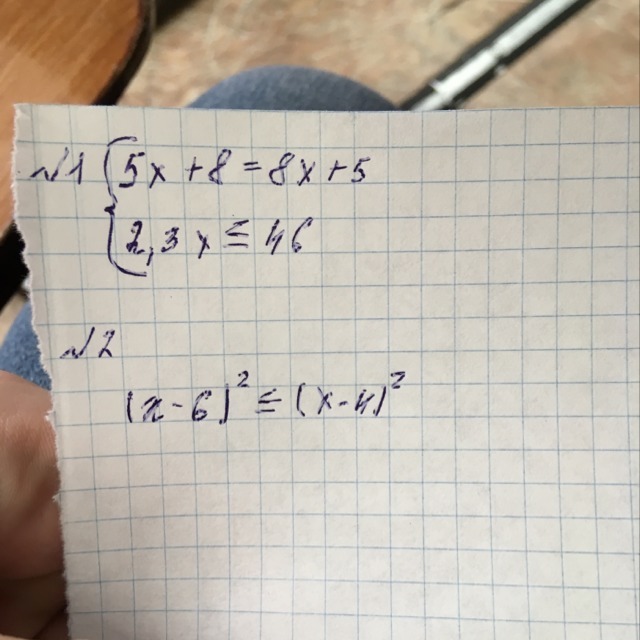 №1 { 5x + 8 = 8x + 5
2,3x ≤ 46
№2
(x - 6)² ≤ (x - 4)²